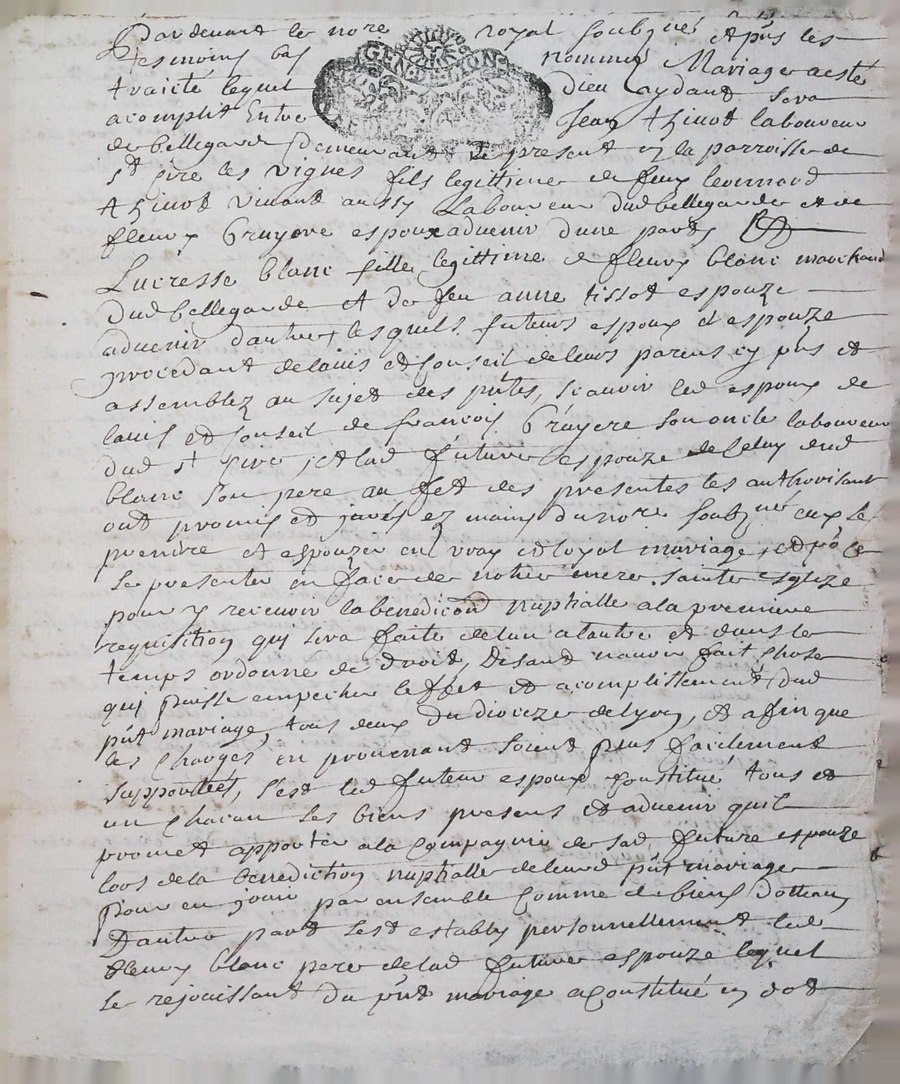 Par devant le no.re royal soubzné et pñs les
tesmoins bas nommés Mariage a esté
traicté lequel Dieu aydant sera
acomplit Entre Jean thinot laboureur
de bellegarde demeurant de present en la parroisse de
s.t sire les vignes fils legittime de feux leonnard
thinot vivant aussy Laboureur dud bellegarde et de
fleury Gruyere espoux advenir d'une part
Lucresse blanc fille legittime de fleury blanc marchand
dud bellegarde et de feu anne tissot espouze
advenir d'autre, lesquels futeurs espoux et espouze
procedant de l'avis et conseil de leurs parens cy pñs et
assemblez au sujet des pñtes, scavoir led espoux de
lavis et conseil de francois Gruyere son oncle laboureur
dud s.t sire, et lad future espouze de celuy dud
blanc son pere au fet des presentes les authorisant
ont promis et jurés ez mains du no.re soubzné eux se
prendre et espouzer en vray et loyal mariage, et po ce
se presenter en face de notre mere sainte esglize
pour y recevoir la benedicõn nuphalle a la premiere
requisition qui sera faite de lun a lautre et dans le
temps ordonné de droit, Disant n'avoir fait chose
qui puisse empecher le fet et acomplissement dud
pñt mariage, tous deux du dioceze de lyon, et afin que
les charges en provenant soient plus facilement
supportées, s'est led futeur espoux constitué tous et
un chacun ses biens presens et advenir quil
promet apporter a la compagnie de sad future espouze
lors de la benediction nuphalle de leurd pñt mariage
pour en jouir par ensemble comme de biens dotteaux
Dautre part s'est estably personnellement led
fleury blanc pere de lad future espouze lequel
se rejouissant du pñt mariage a constitué en dot
GEN. DE LION